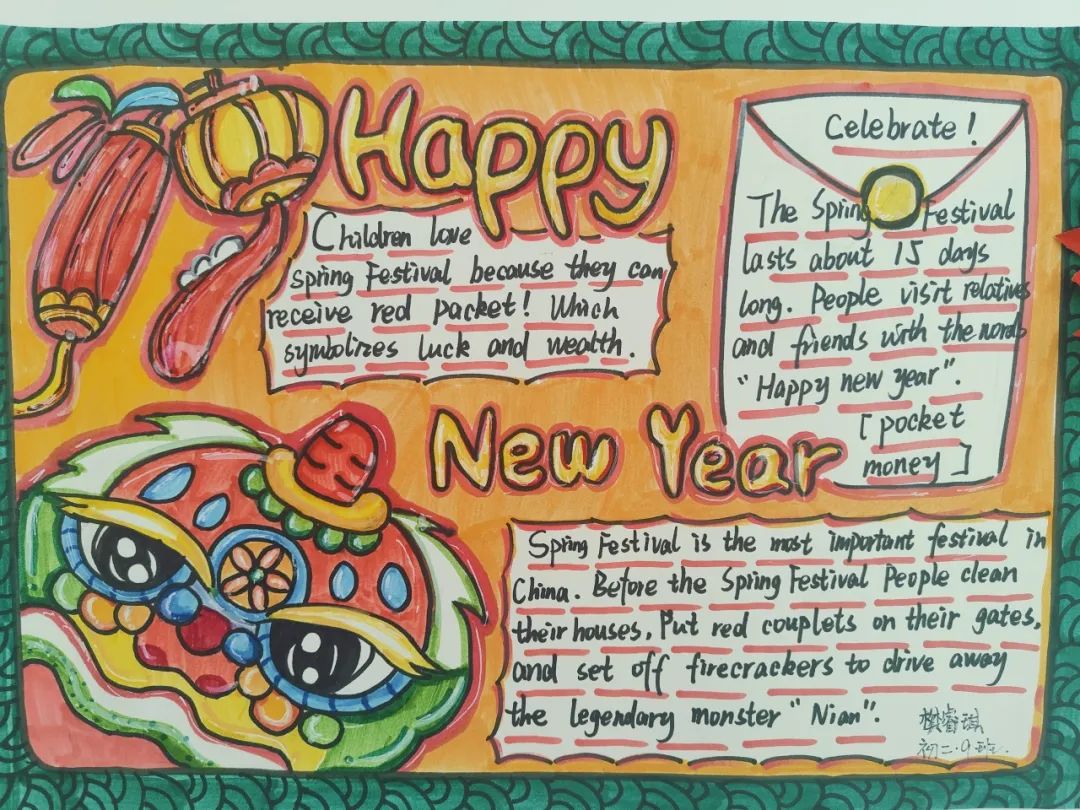 Happy
Children love
spring Festival because they can
receive red packet! Which
symbolizes luck and wealth.
Celebrate!
The Spring Festival
lasts about 15 days
long. People visit relatives
and friends with the words
“Happy new year”.
[pocket
money]
New Year
Spring Festival is the most important festival in
China. Before the Spring Festival People clean
their houses, Put red couplets on their gates,
and set off firecrackers to drive away
the legendary monster “Nian”.
睿琪
初二·9班.